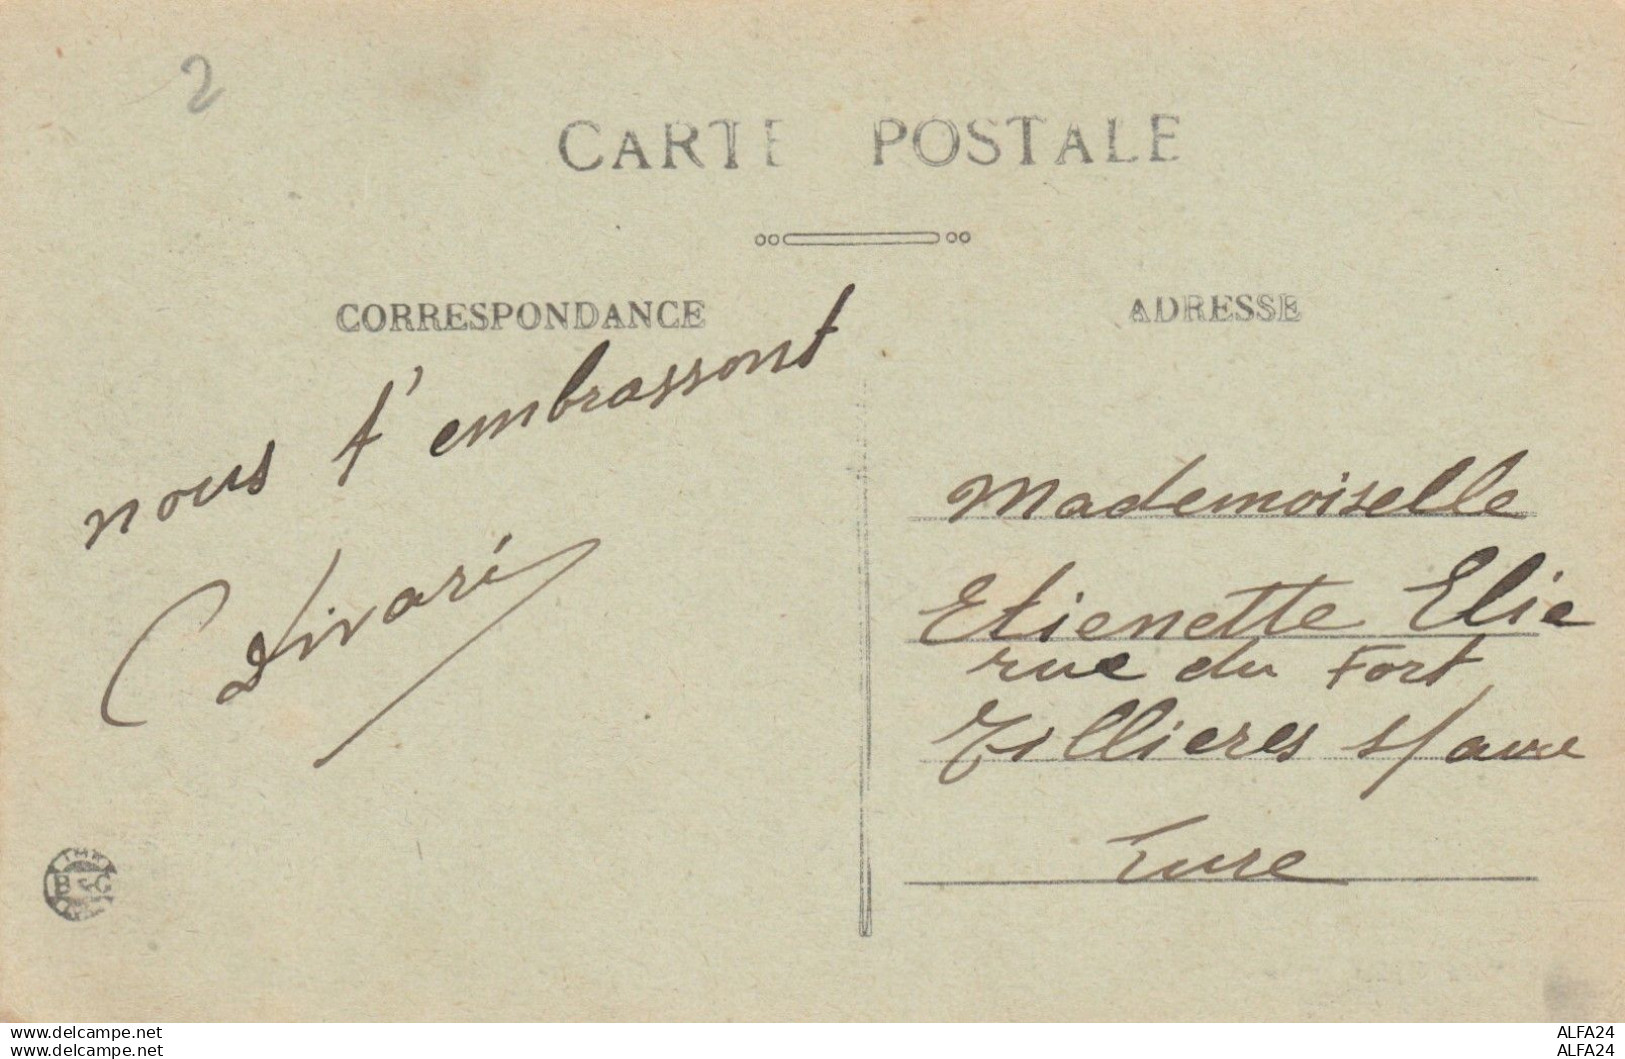 2
CARTE POSTALE
CORRESPONDANCE
ADRESSE
nous t'embrassont
Mademoiselle
Etienette Elie
rue du Fort
Tillieres s/ avre
Eure
www.delcampe.net
www.delcampe.net
ALFA24
ALFA24